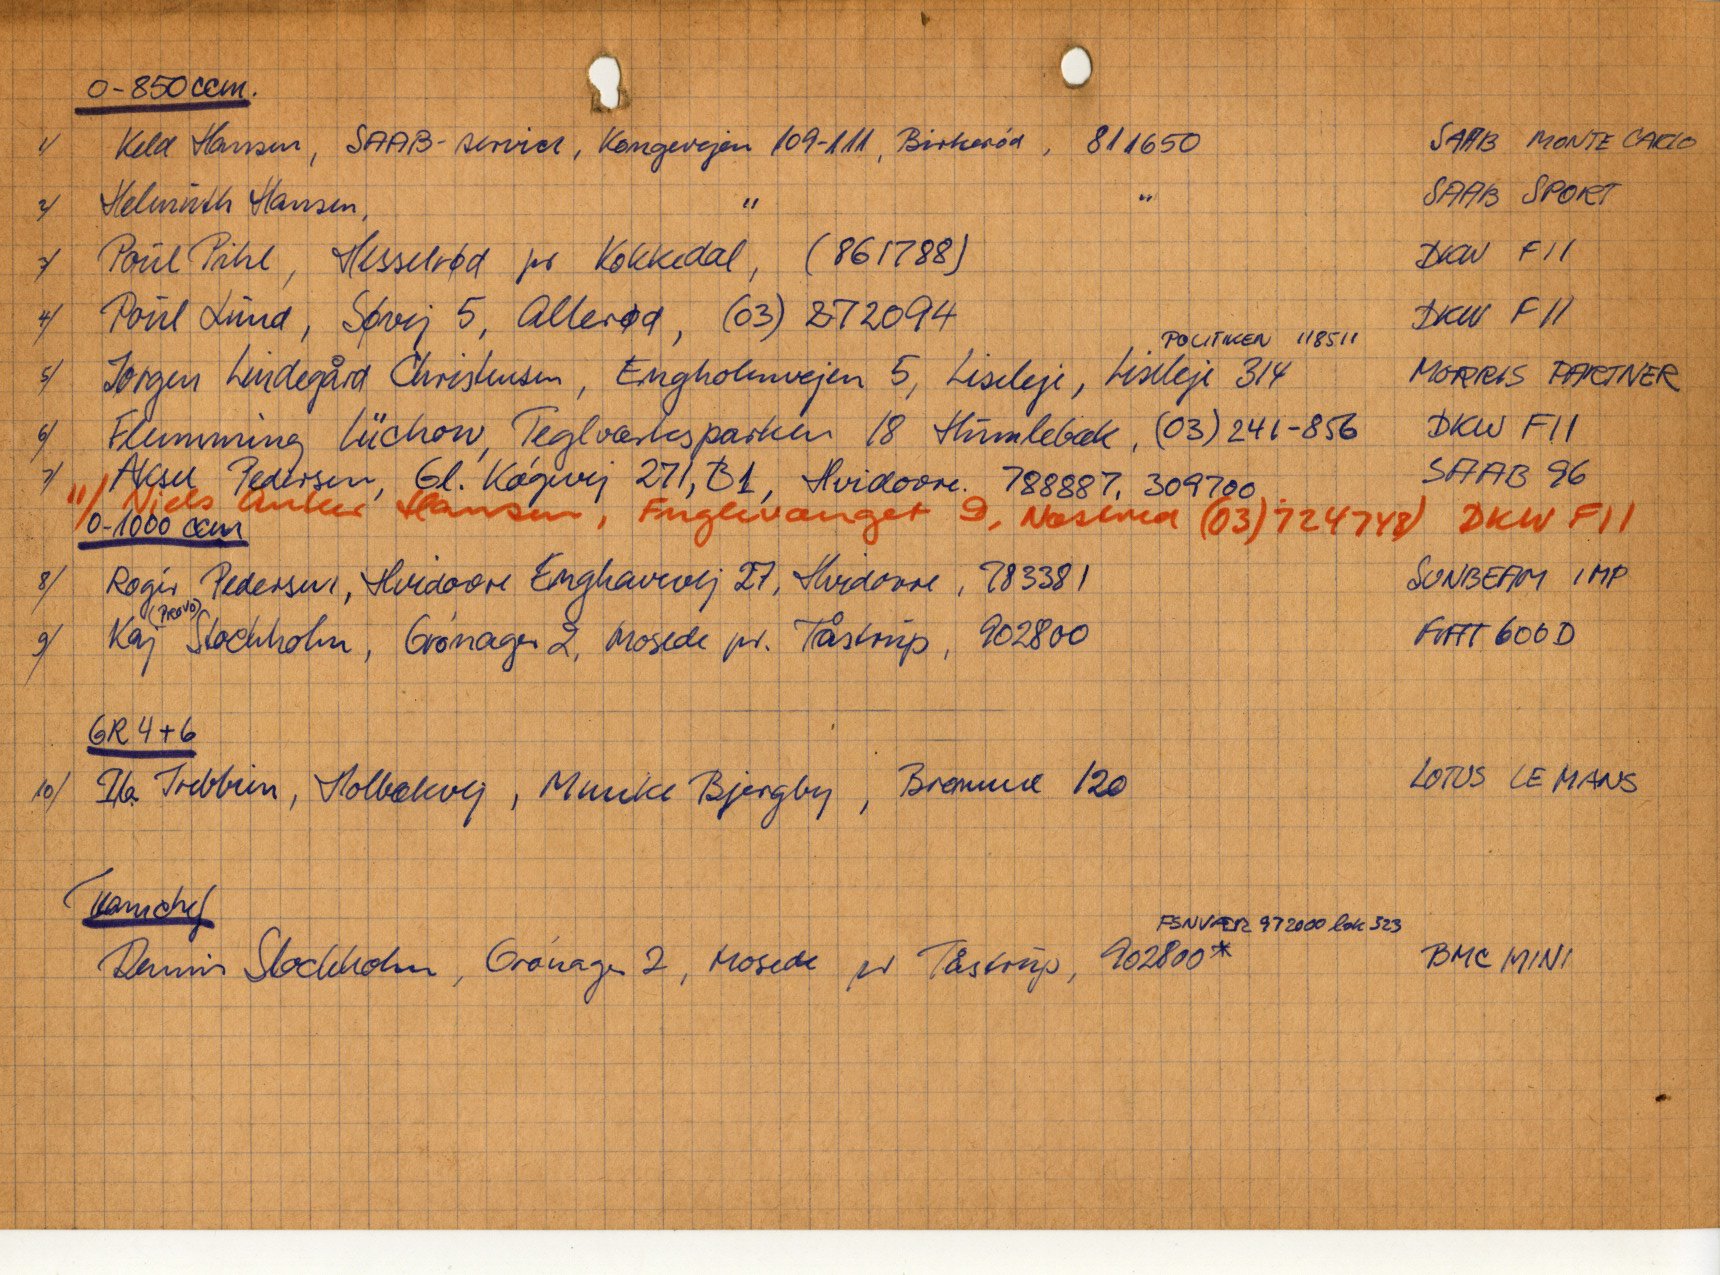 0-850 ccm.
1/ Keld Hansen, SAAB-service, Kongevejen 109-111, Birkerød, 811650 SAAB MONTE CARLO
2/ Helmuth Hansen, " " SAAB SPORT
3/ Poul Pihl, Hesselrød pr Kokkedal, (861788) DKW F11
4/ Poul Lund, Søvej 5, Allerød, (03) 272094 DKW F11
POLITIKEN 118511
5/ Jørgen Lindegård Christensen, Engholmvejen 5, Liseleje, Liseleje 314 MORRIS PARTNER
6/ Flemming Lüchow, Teglværksparken 18 Humlebæk, (03) 241-856 DKW F11
7/ Aksel Pedersen, Gl. Køgevej 271, B1, Hvidovre. 788887, 309700 SAAB 96
11/ Niels Anker Hansen, Fuglevænget 9, Næstved (03) 724748 DKW F11
0-1000 ccm
8/ Roger Pedersen, Hvidovre Enghavevej 27, Hvidovre, 783381 SUNBEAM IMP
(PROVO)
9/ Kaj Stockholm, Grønager 2, Mosede pr. Tåstrup, 902800 FIAT 600 D
GR 4+6
10/ Ib Trebbien, Holbækvej, Munke Bjergby, Bromme 120 LOTUS LE MANS
Teamchef
FSNVÆR 972000 lok 323
Dennis Stockholm, Grønager 2, Mosede pr Tåstrup, 902800* BMC MINI